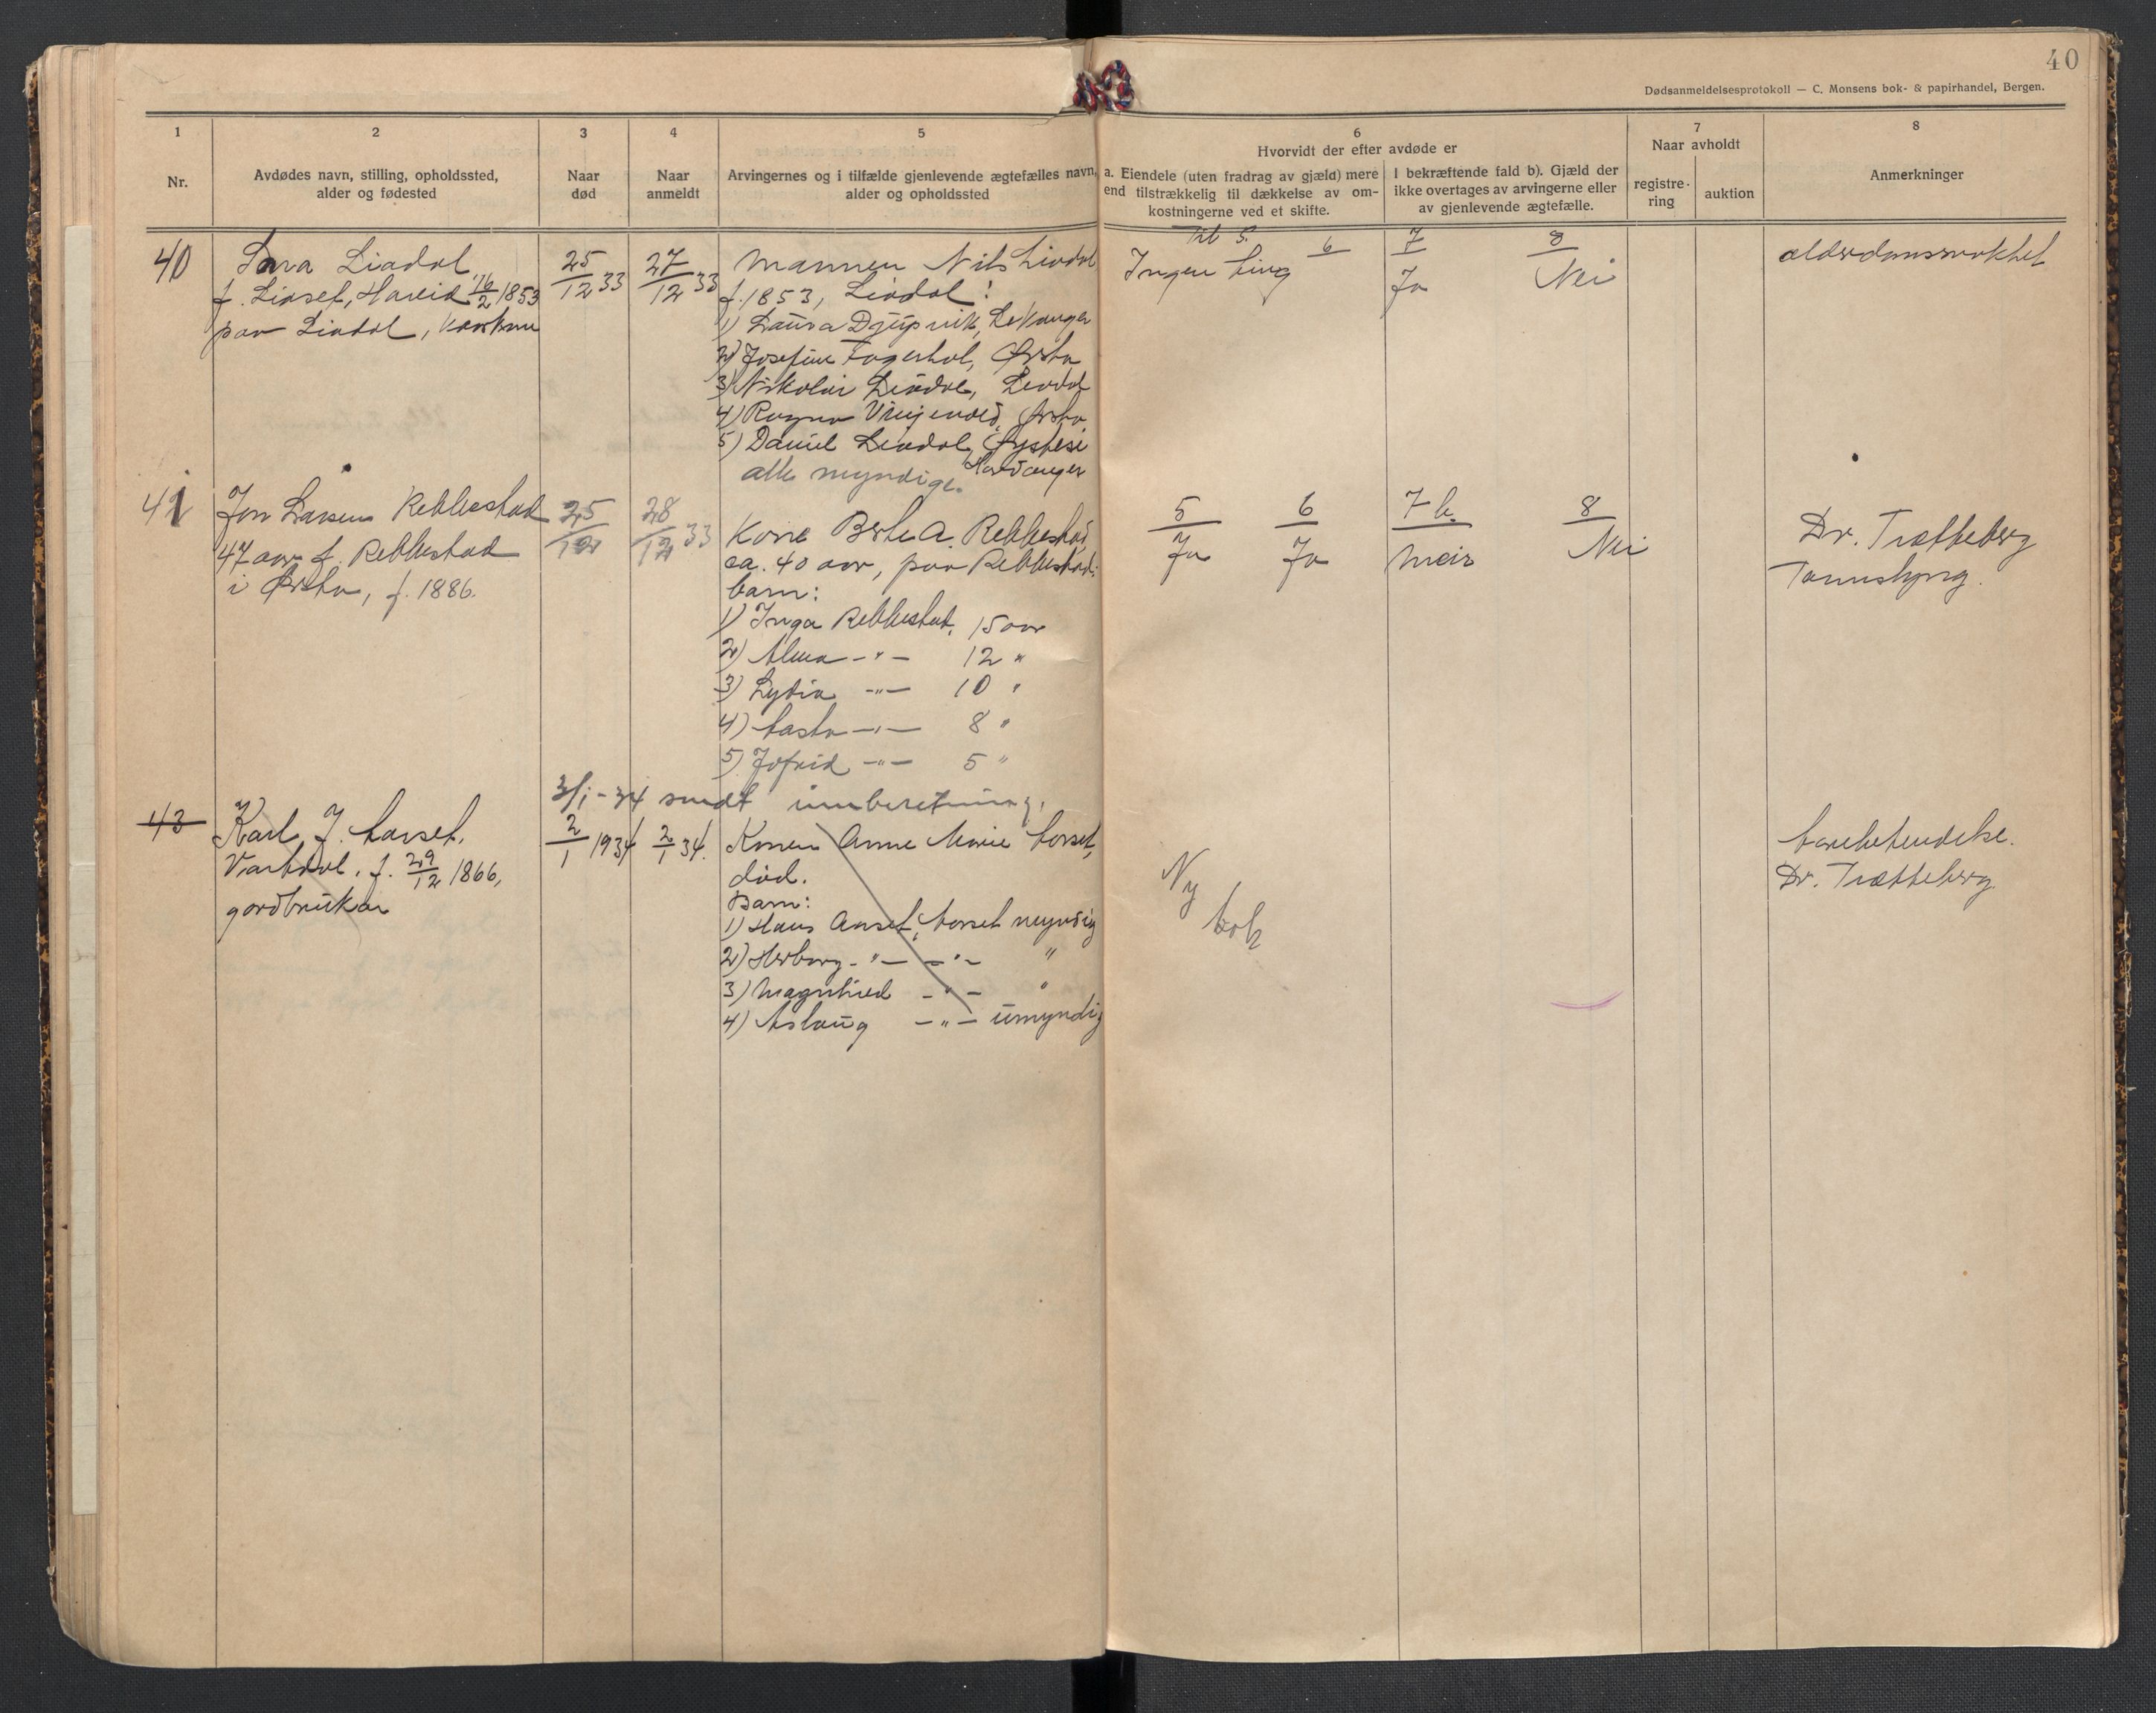 40
Dødsanmeldelsesprotokoll — C. Monsens bok- & papirhandel, Bergen.
1 2 3 4 5 6 7 8
Nr.
Avdødes navn, stilling, opholdssted,
alder og fødested
Naar
død
Naar
anmeldt
Arvingernes og i tilfælde gjenlevende ægtefælles navn,
alder og opholdssted
Hvorvidt der efter avdøde er
a. Eiendele (uten fradrag av gjæld) mere
end tilstrækkelig til dækkelse av om-
kostningerne ved et skifte.
I bekræftende fald b). Gjæld der
ikke overtages av arvingerne eller
av gjenlevende ægtefælle.
Naar avholdt
registre-
ring
auktion
Anmerkninger
40
Liadal
f. Liaset, Hareid 16/2 1853
paa Liadal,
25/12 33
27/12 33
Mannen Nils Liadal
f. 1853, Liadal:
1) Laura Djupvik, Lekanger
2) Josefine Fagerhol, Ørsta
3) Nikolai Liadal, Liadal
4) Ragna Ørsta
5) Daniel Liadal, Øystese
Hardanger
alle myndige.
Til 5. 6 7 8
Ingen ting Ja Nei
41
Jon Larsen Rebbestad
47 aar f. Rebbestad
i Ørsta, f. 1886.
25/12
28/12 33
Kone Rebbestad,
ca. 40 aar, paa Rebbestad:
barn:
1) Inga Rebbestad, 15 aar
2) Alma -"- 12 "
3) Lydia -"- 10 "
4) Aasta -"- 8 "
5) Jofrid -"- 5 "
5 6 7 b. 8
Ja Ja Nei
Dr. Trætteberg
3/1 - 34 sendt innberetning.
43
Karl J. Aarset,
Vartdal. f. 29/12 1866,
gardbrukar
2/1 1934
2/1 34.
Konen Anne Marie Aarset,
død.
Barn:
1) Hans Aarset, Aarset myndig
2) Herborg -"- -"- "
3) Magnhild -"- "
4) Aslaug -"- umyndig
Ny
bok
Dr. Trætteberg